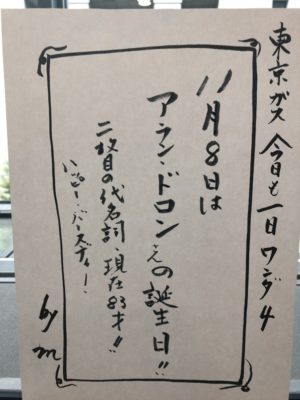 東京ガス 今日も一日ワンダ4
11月8日は
アラン・ドロンさんの誕生日!!
二枚目の代名詞・現在83才!!
ハッピー・バースディ!
by m